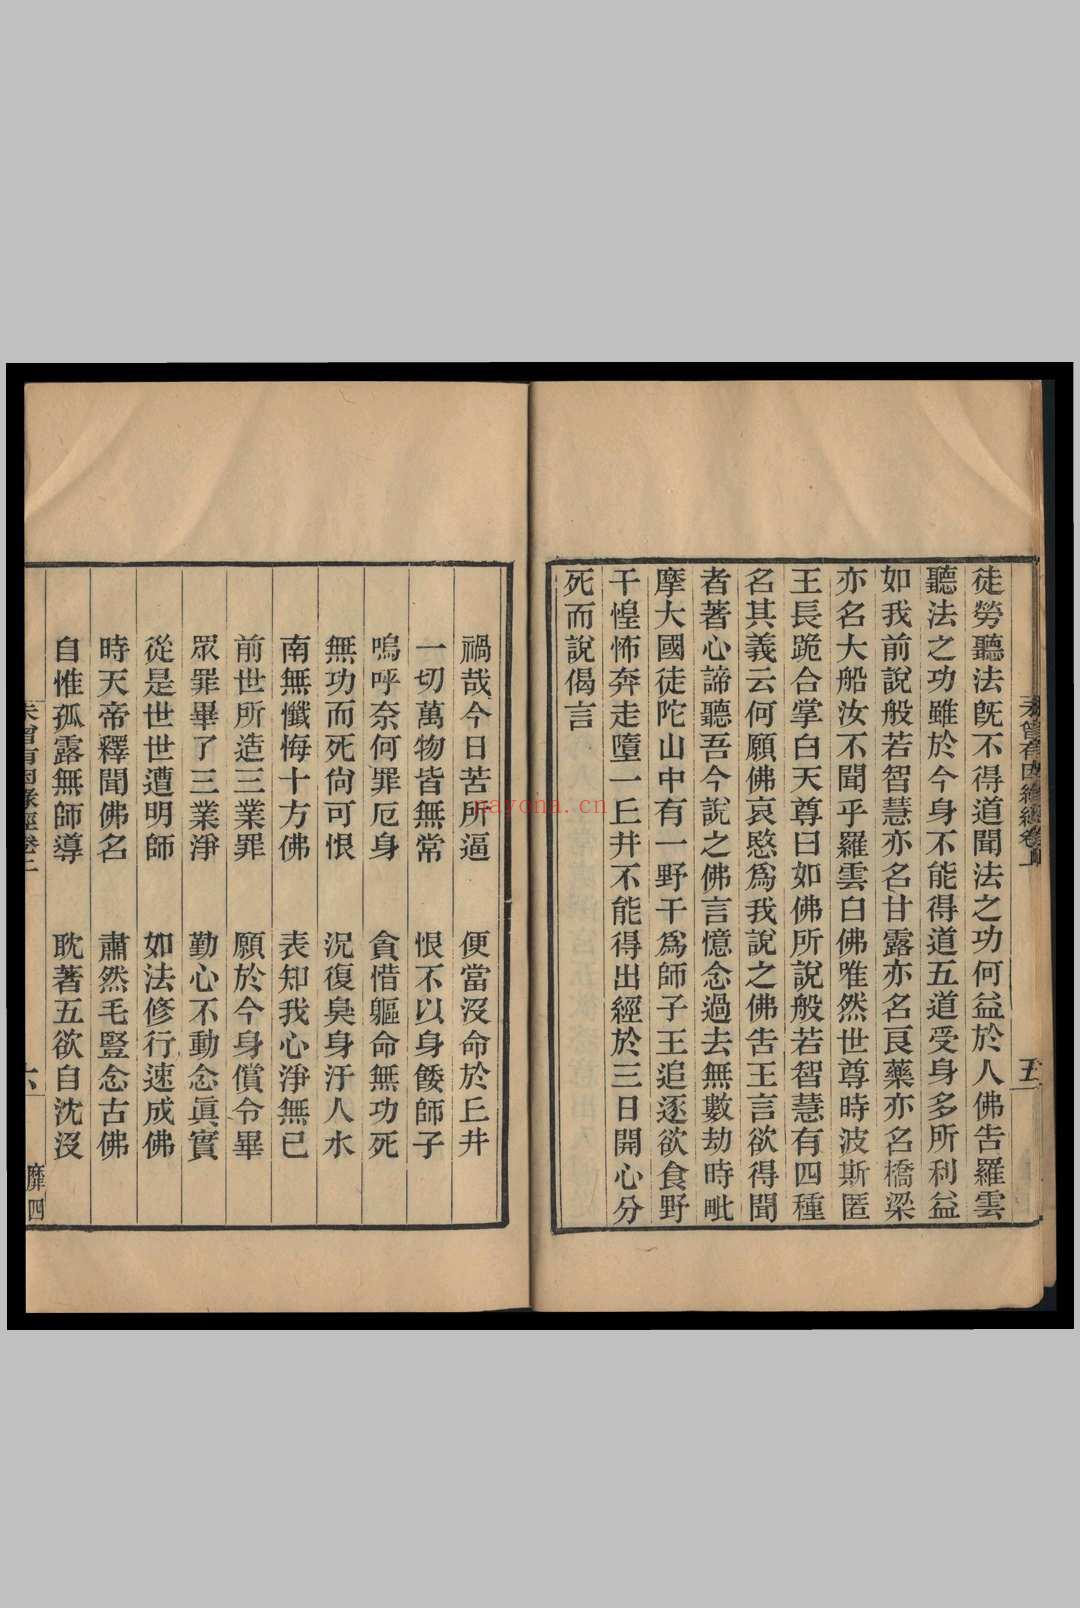 未曾有因緣經卷上　五
徒勞聽法旣不得道聞法之功何益於人佛吿羅雲
聽法之功雖於今身不能得道五道受身多所利益
如我前說般若智慧亦名甘露亦名良藥亦名橋梁
亦名大船汝不聞乎羅雲白佛唯然世尊時波斯匿
王長跪合掌白天尊曰如佛所說般若智慧有四種
名其義云何願佛哀愍爲我說之佛吿王言欲得聞
者著心諦聽吾今說之佛言憶念過去無數劫時毗
摩大國徒陀山中有一野干爲師子王追逐欲食野
干惶怖奔走墮一丘井不能得出經於三日開心分
死而說偈言
禍哉今日苦所逼　便當沒命於丘井
一切萬物皆無常　恨不以身餧師子
嗚呼奈何罪厄身　貪惜軀命無功死
無功而死尙可恨　況復臭身汙人水
南無懺悔十方佛　表知我心淨無已
前世所造三業罪　願於今身償令畢
眾罪畢了三業淨　勤心不動念眞實
從是世世遭明師　如法修行速成佛
時天帝釋聞佛名　肅然毛豎念古佛
自惟孤露無師導　耽著五欲自沈沒
未曾有因緣經卷上　六　靡四
nayona.cn